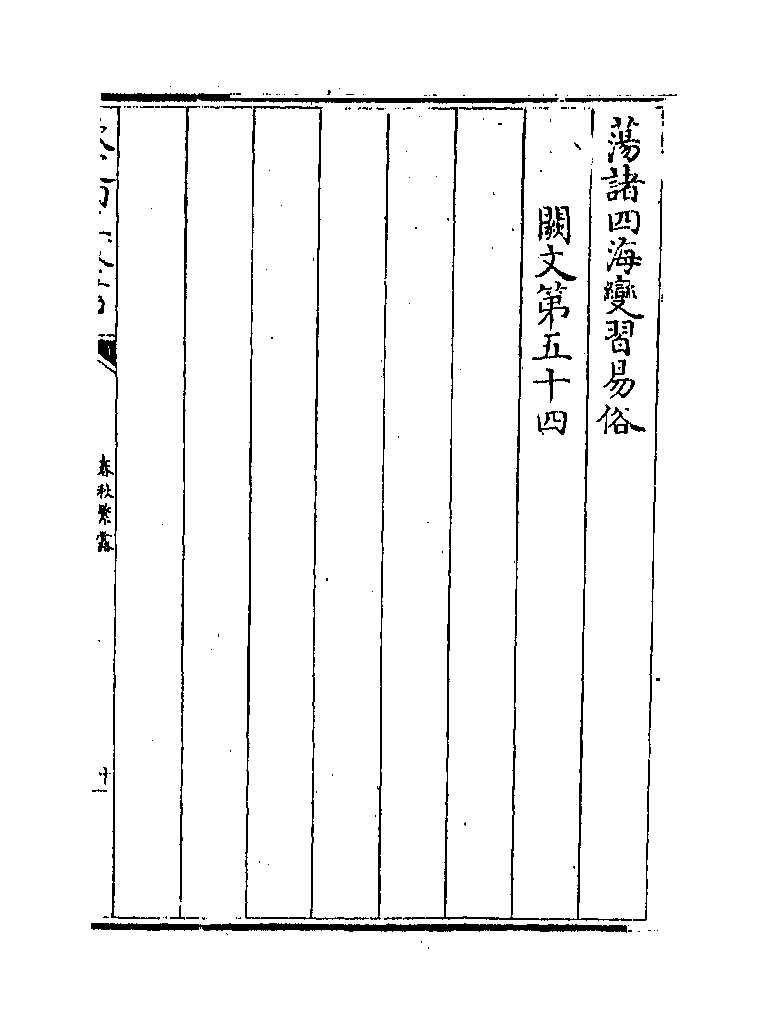 蕩諸四海變習易俗
闕文第五十四
春秋繁露
十